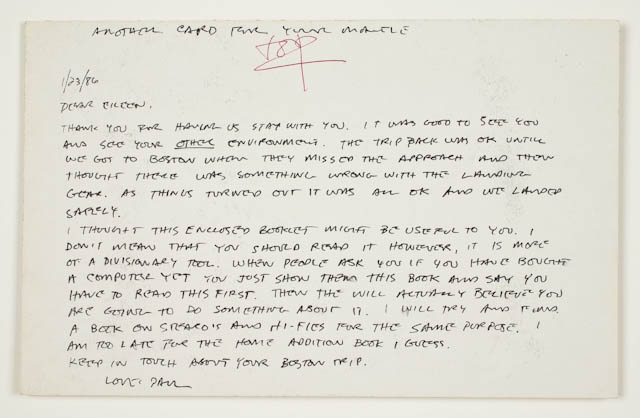 ANOTHER CARD FOR YOUR MANTLE
1/23/86
DEAR EILEEN.
THANK YOU FOR HAVING US STAY WITH YOU. IT WAS GOOD TO SEE YOU
AND SEE YOUR OTHER ENVIRONMENT. THE TRIP BACK WAS OK UNTIL
WE GOT TO BOSTON WHEN THEY MISSED THE APPROACH AND THEN
THOUGHT THERE WAS SOMETHING WRONG WITH THE LANDING
GEAR. AS THINGS TURNED OUT IT WAS ALL OK AND WE LANDED
SAFELY.
I THOUGHT THIS ENCLOSED BOOKLET MIGHT BE USEFUL TO YOU. I
DON'T MEAN THAT YOU SHOULD READ IT HOWEVER, IT IS MORE
OF A DIVISIONARY TOOL. WHEN PEOPLE ASK YOU IF YOU HAVE BOUGHT
A COMPUTER YET YOU JUST SHOW THEM THIS BOOK AND SAY YOU
HAVE TO READ THIS FIRST. THEN THE WILL ACTUALLY BELIEVE YOU
ARE GOING TO DO SOMETHING ABOUT IT. I WILL TRY AND FIND
A BOOK ON STEREO'S AND HI-FIES FOR THE SAME PURPOSE. I
AM TOO LATE FOR THE HOME ADDITION BOOK I GUESS.
KEEP IN TOUCH ABOUT YOUR BOSTON TRIP.
LOVE, PAUL